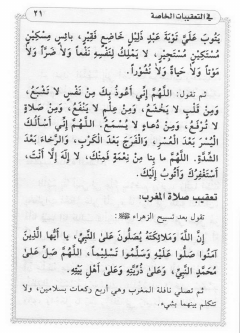 في التعقيبات الخاصة
٢١
يَتُوبَ عَلَيَّ تَوْبَةَ عَبْدٍ ذَلِيلٍ خَاضِعٍ فَقِيرٍ، بائِسٍ مِسْكِينٍ
مُسْتَكِينٍ مُسْتَجِيرٍ، لا يَمْلِكُ لِنَفْسِهِ نَفْعاً وَلاَ ضَرّاً وَلاَ
مَوْتاً وَلاَ حَيَاةً وَلاَ نُشُوراً.
ثم تقول: اللَّهُمَّ إنِّي أَعُوذُ بِكَ مِنْ نَفْسٍ لا تَشْبَعُ،
وَمِنْ قَلْبٍ لا يَخْشَعُ، وَمِنْ عِلْمٍ لا يَنْفَعُ، وَمِنْ صَلاةٍ
لا تُرْفَعُ، وَمِنْ دُعاءٍ لا يُسْمَعُ. اللَّهُمَّ إنِّي أَسْأَلُكَ
الْيُسْرَ بَعْدَ الْعُسْرِ، وَالْفَرَجَ بَعْدَ الْكَرْبِ، وَالرَّخاءَ بَعْدَ
الشِّدَّةِ. اللَّهُمَّ ما بِنا مِنْ نِعْمَةٍ فَمِنْكَ، لا إلَهَ إلاَّ أَنْتَ،
أَسْتَغْفِرُكَ وَأَتُوبُ إلَيْكَ.
تعقيب صلاة المغرب:
تقول بعد تسبيح الزهراء
إنَّ اللَّهَ وَمَلائِكَتَهُ يُصَلُّونَ عَلَى النَّبِيِّ، يا أَيُّها الَّذِينَ
آمَنُوا صَلُّوا عَلَيْهِ وَسَلِّمُوا تَسْلِيماً، اللَّهُمَّ صَلِّ عَلَى
مُحَمَّدٍ النَّبِيِّ، وَعَلَى ذُرِّيَّتِهِ وَعَلَى أَهْلِ بَيْتِهِ.
ثم تصلي نافلة المغرب وهي أربع ركعات بسلامين، ولا
تتكلم بينهما بشيء.